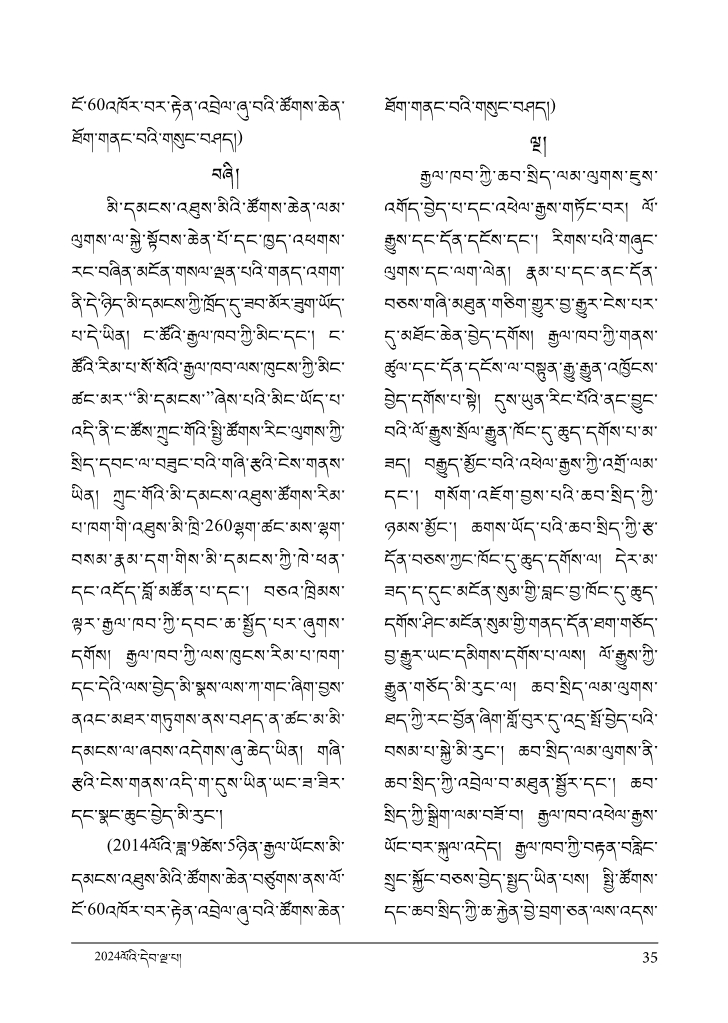 ངོ་60འཁོར་བར་རྟེན་འབྲེལ་ཞུ་བའི་ཚོགས་ཆེན་
ཐོག་གནང་བའི་གསུང་བཤད།)
བཞི།
མི་དམངས་འཐུས་མིའི་ཚོགས་ཆེན་ལམ་
ལུགས་ལ་སྐྱེ་སྟོབས་ཆེན་པོ་དང་ཁྱད་འཕགས་
རང་བཞིན་མངོན་གསལ་ལྡན་པའི་གནད་འགག་
ནི་དེ་ཉིད་མི་དམངས་ཀྱི་ཁྲོད་དུ་ཟབ་མོར་ཟུག་ཡོད་
པ་དེ་ཡིན། ང་ཚོའི་རྒྱལ་ཁབ་ཀྱི་མིང་དང་། ང་
ཚོའི་རིམ་པ་སོ་སོའི་རྒྱལ་ཁབ་ལས་ཁུངས་ཀྱི་མིང་
ཚང་མར་“མི་དམངས་”ཞེས་པའི་མིང་ཡོད་པ་
འདི་ནི་ང་ཚོས་ཀྲུང་གོའི་སྤྱི་ཚོགས་རིང་ལུགས་ཀྱི་
སྲིད་དབང་ལ་བཟུང་བའི་གཞི་རྩའི་ངེས་གནས་
ཡིན། ཀྲུང་གོའི་མི་དམངས་འཐུས་ཚོགས་རིམ་
པ་ཁག་གི་འཐུས་མི་ཁྲི་260ལྷག་ཚང་མས་ལྷག་
བསམ་རྣམ་དག་གིས་མི་དམངས་ཀྱི་ཁེ་ཕན་
དང་འདོད་བློ་མཚོན་པ་དང་། བཅའ་ཁྲིམས་
ལྟར་རྒྱལ་ཁབ་ཀྱི་དབང་ཆ་སྤྱོད་པར་ཞུགས་
དགོས། རྒྱལ་ཁབ་ཀྱི་ལས་ཁུངས་རིམ་པ་ཁག་
དང་དེའི་ལས་བྱེད་མི་སྣས་ལས་ཀ་གང་ཞིག་བྱས་
ནའང་མཐར་གཏུགས་ནས་བཤད་ན་ཚང་མ་མི་
དམངས་ལ་ཞབས་འདེགས་ཞུ་ཆེད་ཡིན། གཞི་
རྩའི་ངེས་གནས་འདི་ག་དུས་ཡིན་ཡང་ཟ་ཟིར་
དང་སྣང་ཆུང་བྱེད་མི་རུང་།
(2014ལོའི་ཟླ་9ཚེས་5ཉིན་རྒྱལ་ཡོངས་མི་
དམངས་འཐུས་མིའི་ཚོགས་ཆེན་བཙུགས་ནས་ལོ་
ངོ་60འཁོར་བར་རྟེན་འབྲེལ་ཞུ་བའི་ཚོགས་ཆེན་
ཐོག་གནང་བའི་གསུང་བཤད།)
ལྔ།
རྒྱལ་ཁབ་ཀྱི་ཆབ་སྲིད་ལམ་ལུགས་ཇུས་
འགོད་བྱེད་པ་དང་འཕེལ་རྒྱས་གཏོང་བར། ལོ་
རྒྱུས་དང་དོན་དངོས་དང་། རིགས་པའི་གཞུང་
ལུགས་དང་ལག་ལེན། རྣམ་པ་དང་ནང་དོན་
བཅས་གཞི་མཐུན་གཅིག་གྱུར་བྱ་རྒྱུར་ངེས་པར་
དུ་མཐོང་ཆེན་བྱེད་དགོས། རྒྱལ་ཁབ་ཀྱི་གནས་
ཚུལ་དང་དོན་དངོས་ལ་བསྟུན་རྒྱུ་རྒྱུན་འཁྱོངས་
བྱེད་དགོས་པ་སྟེ། དུས་ཡུན་རིང་པོའི་ནང་བྱུང་
བའི་ལོ་རྒྱུས་སྲོལ་རྒྱུན་ཁོང་དུ་ཆུད་དགོས་པ་མ་
ཟད། བརྒྱུད་མྱོང་བའི་འཕེལ་རྒྱས་ཀྱི་འགྲོ་ལམ་
དང་། གསོག་འཇོག་བྱས་པའི་ཆབ་སྲིད་ཀྱི་
ཉམས་མྱོང་། ཆགས་ཡོད་པའི་ཆབ་སྲིད་ཀྱི་རྩ་
དོན་བཅས་ཀྱང་ཁོང་དུ་ཆུད་དགོས་ལ། དེར་མ་
ཟད་ད་དུང་མངོན་སུམ་གྱི་བླང་བྱ་ཁོང་དུ་ཆུད་
དགོས་ཤིང་མངོན་སུམ་གྱི་གནད་དོན་ཐག་གཅོད་
བྱ་རྒྱུར་ཡང་དམིགས་དགོས་པ་ལས། ལོ་རྒྱུས་ཀྱི་
རྒྱུན་གཅོད་མི་རུང་ལ། ཆབ་སྲིད་ལམ་ལུགས་
ཐད་ཀྱི་རང་བྱོན་ཞིག་གློ་བུར་དུ་འདྲ་སྤོ་བྱེད་པའི་
བསམ་པ་སྐྱེ་མི་རུང་། ཆབ་སྲིད་ལམ་ལུགས་ནི་
ཆབ་སྲིད་ཀྱི་འབྲེལ་བ་མཐུན་སྦྱོར་དང་། ཆབ་
སྲིད་ཀྱི་སྒྲིག་ལམ་བཟོ་བ། རྒྱལ་ཁབ་འཕེལ་རྒྱས་
ཡོང་བར་སྐུལ་འདེད། རྒྱལ་ཁབ་ཀྱི་བརྟན་བརླིང་
སྲུང་སྐྱོང་བཅས་བྱེད་སྤྱད་ཡིན་པས། སྤྱི་ཚོགས་
དང་ཆབ་སྲིད་ཀྱི་ཆ་རྐྱེན་བྱེ་བྲག་ཅན་ལས་འདས་
2024ལོའི་དེབ་ལྔ་པ།
35